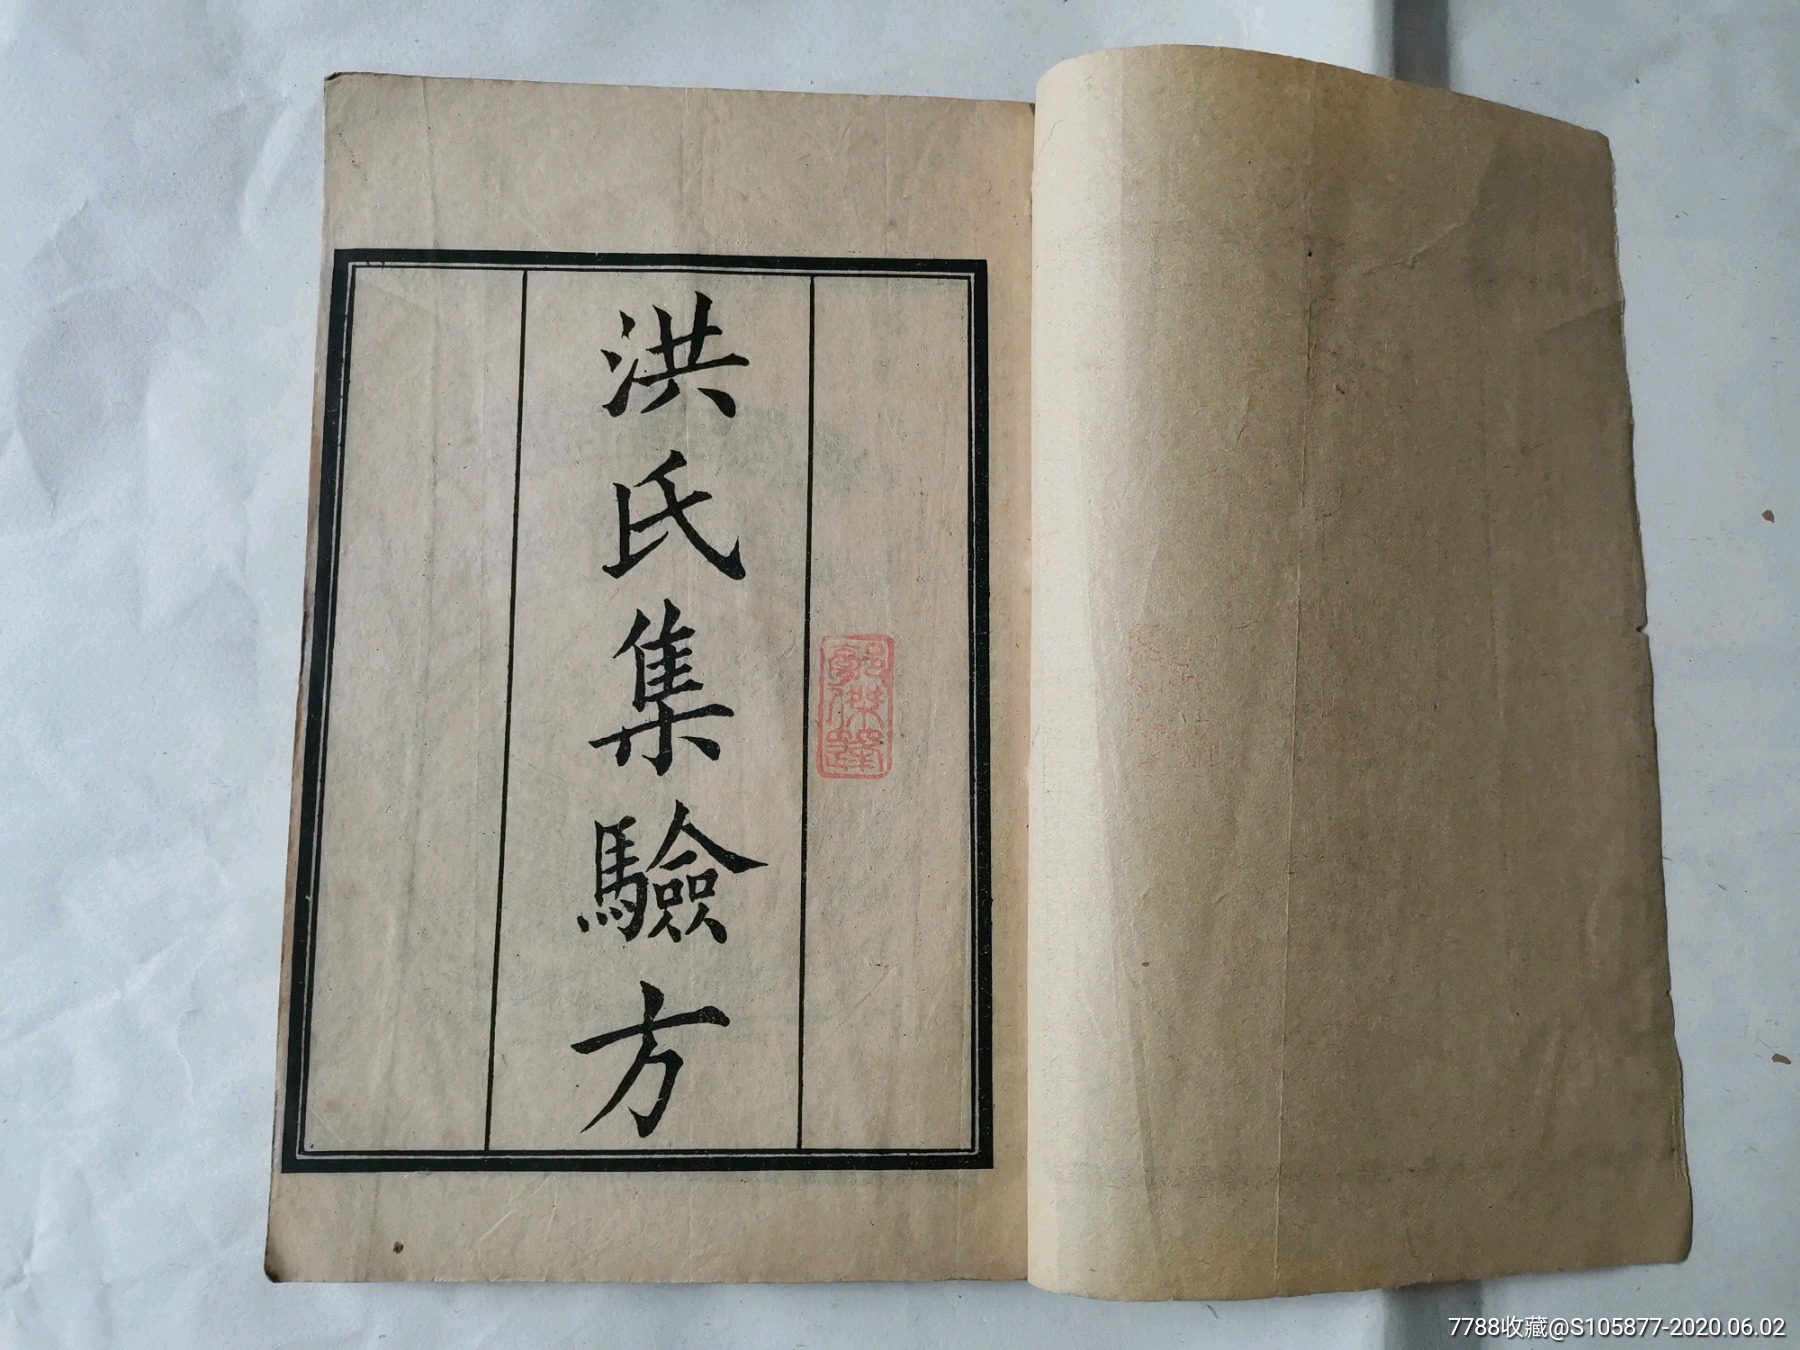 洪氏集驗方
7788收藏@S105877-2020.06.02